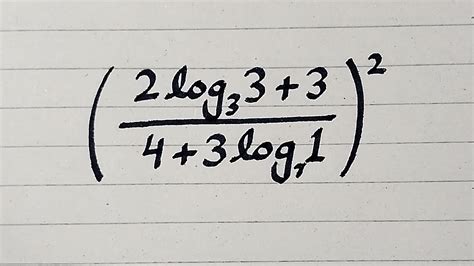 ( 2 log₃ 3 + 3
4 + 3 log₇ 1 )²